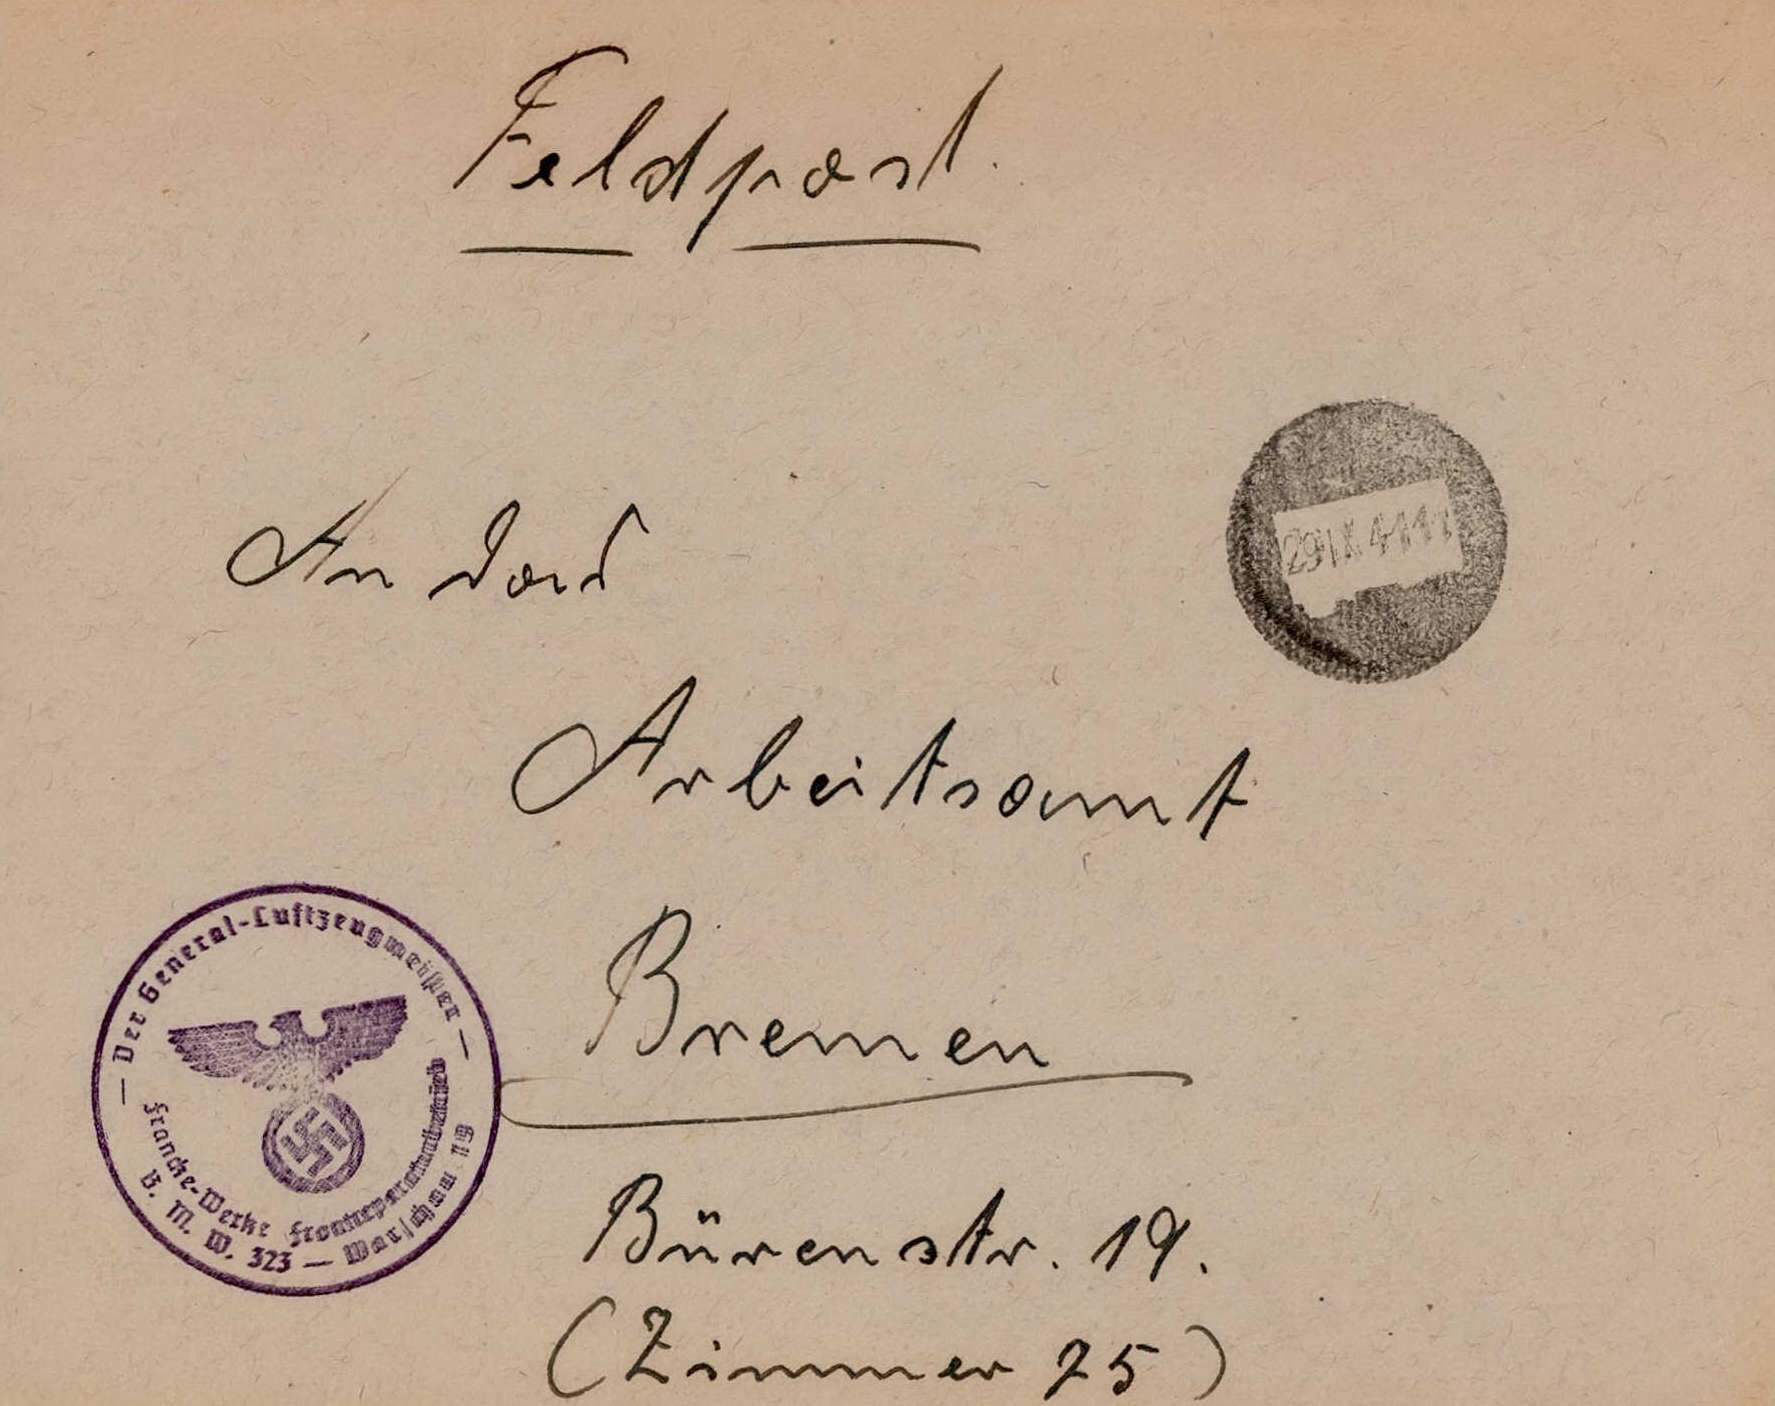 Feldpost.
29.IX.41.11
An das
Arbeitsamt
Bremen
Bürenstr. 19.
(Zimmer 25)
— Der General-Luftzeugmeister —
Francke-Werke Frontreparaturbetrieb
B. M. W. 323 — Warschau 19